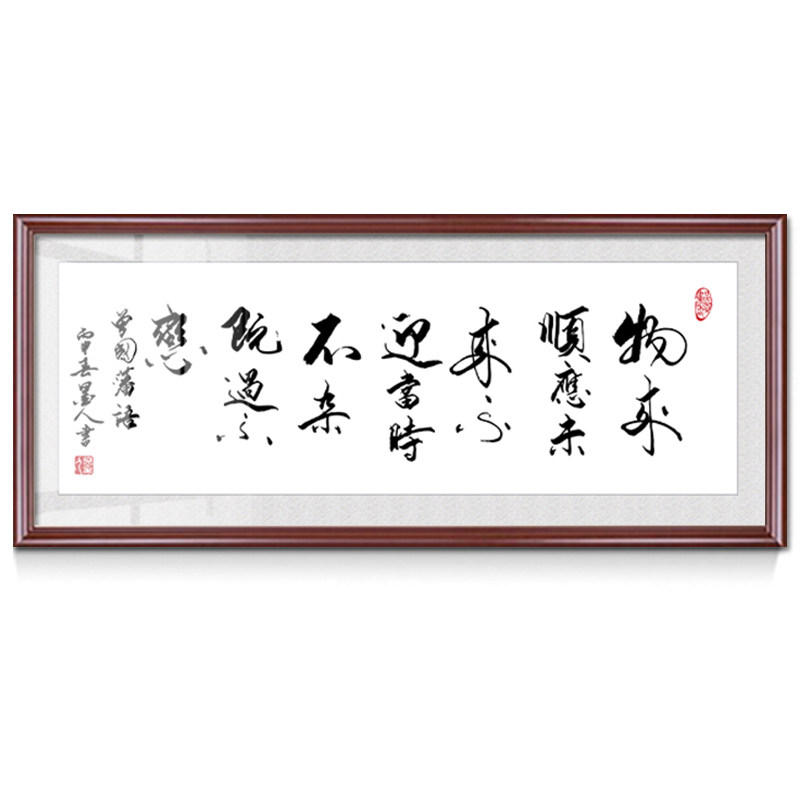 物來
順應未
來不
迎當時
不杂
既過不
戀
曾國藩語
丙申春墨人書